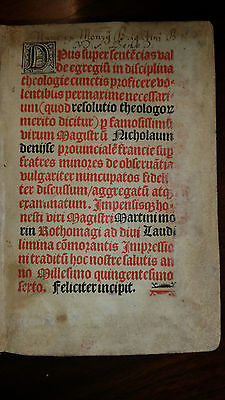 Opus super sentẽcias val
de egregiũ in disciplina
theologie cunctis proficere vo
lentibus permaxime necessar
rium (quod resolutio theologoꝝ
merito dicitur) ꝑ famosissimũ
virum Magistrũ Nicholaum
denise prouincialẽ francie sup
fratres minores de obseruãtia
vulgariter nuncupatos fidelit
ter discussum / aggregatũ atqꝫ
examinatum. Impensisqꝫ ho
nesti viri Magistri Martini mo
rin Rothomagi ad diui Laudi
limina cõmorantis Impressio
ni traditũ hoc nostre salutis an
no Millesimo quingentesimo
sexto. Feliciter incipit.